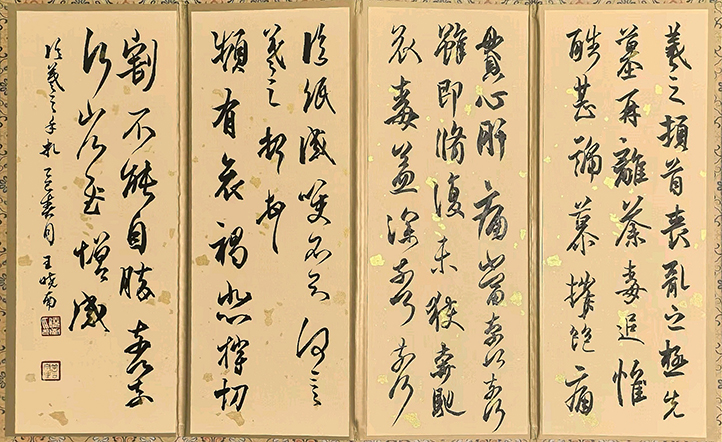 羲之頓首喪亂之極先
墓再離荼毒追惟
酷甚號慕摧絕痛
貫心肝痛當奈何奈何
雖即脩復未獲奔馳
哀毒益深奈何奈何
臨紙感哽不知何言
羲之頓首頓首
頻有哀禍悲摧切
割不能自勝奈何奈
何省慰增感
臨羲之手札乙巳春月王曉南